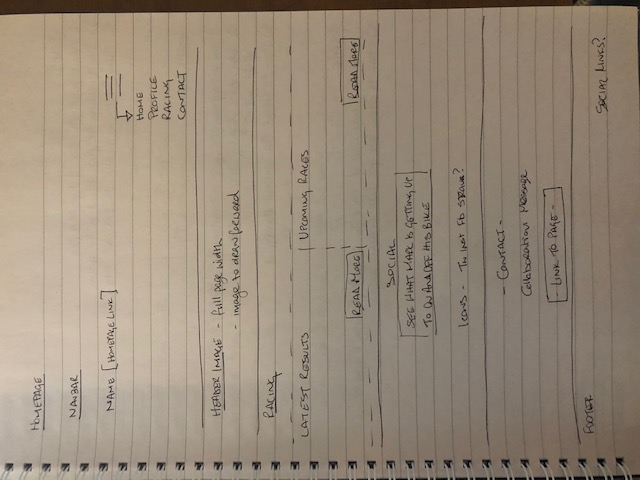 HOMEPAGE
NAVBAR
NAME [HOMEPAGE LINK]
HOME
PROFILE
RACING
CONTACT
HEADER IMAGE - full page width
- image to draw forward
RACING
LATEST RESULTS
READ MORE
UPCOMING RACES
READ MORE
SOCIAL
SEE WHAT MARK IS GETTING UP
TO ON AND OFF HIS BIKE
ICONS - TW INST FB STRAVA?
- CONTACT -
Collaboration Message
- LINK TO PAGE -
FOOTER
SOCIAL LINKS?